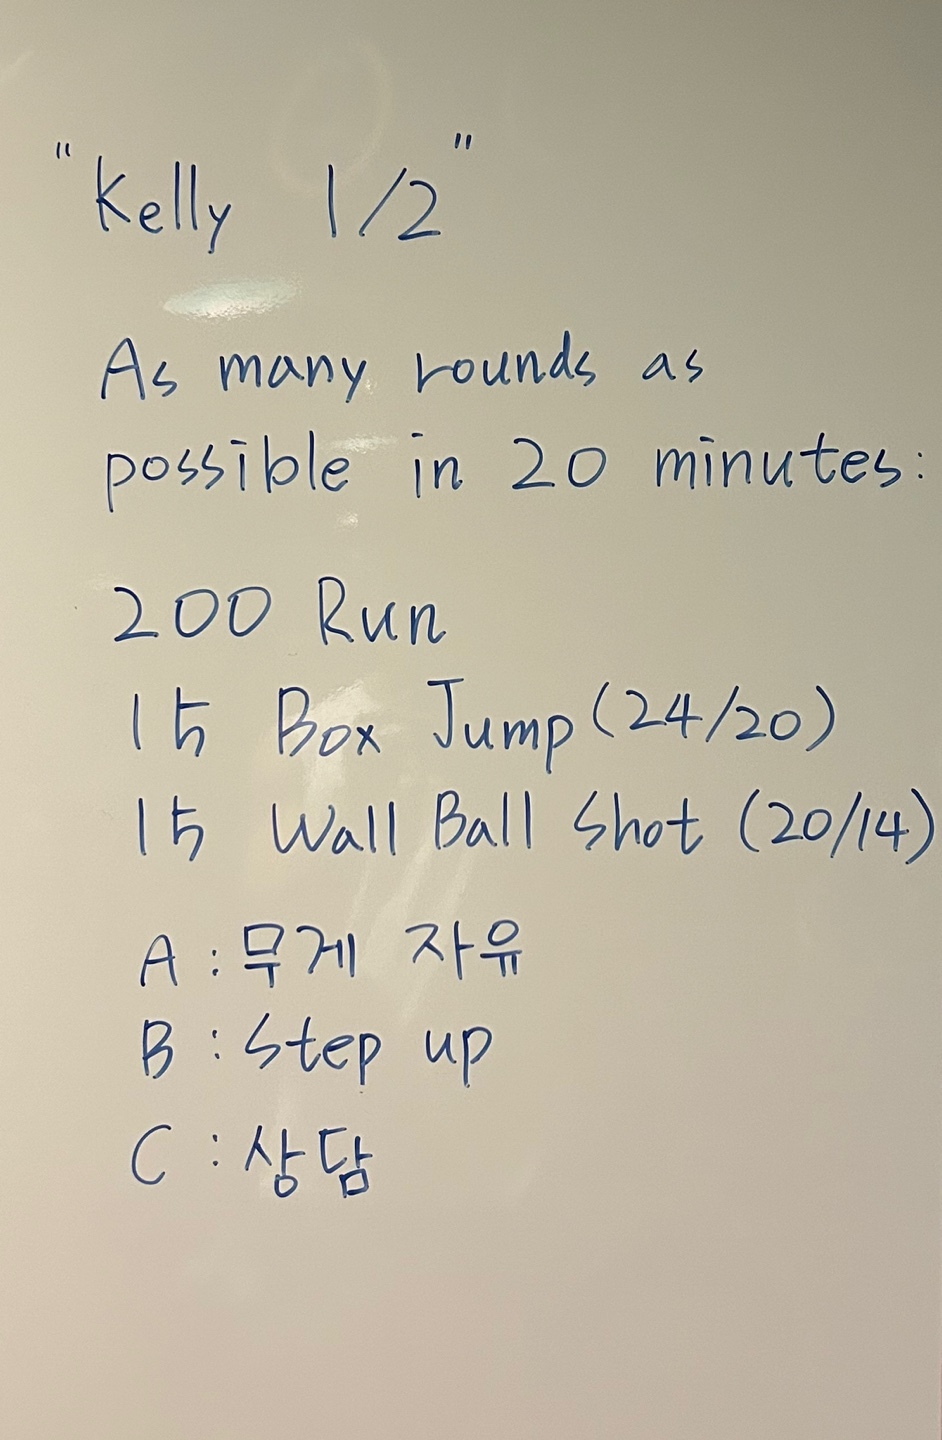 "Kelly 1/2"
As many rounds as
possible in 20 minutes:
200 Run
15 Box Jump (24/20)
15 Wall Ball Shot (20/14)
A : 무게 자유
B : Step up
C : 상담